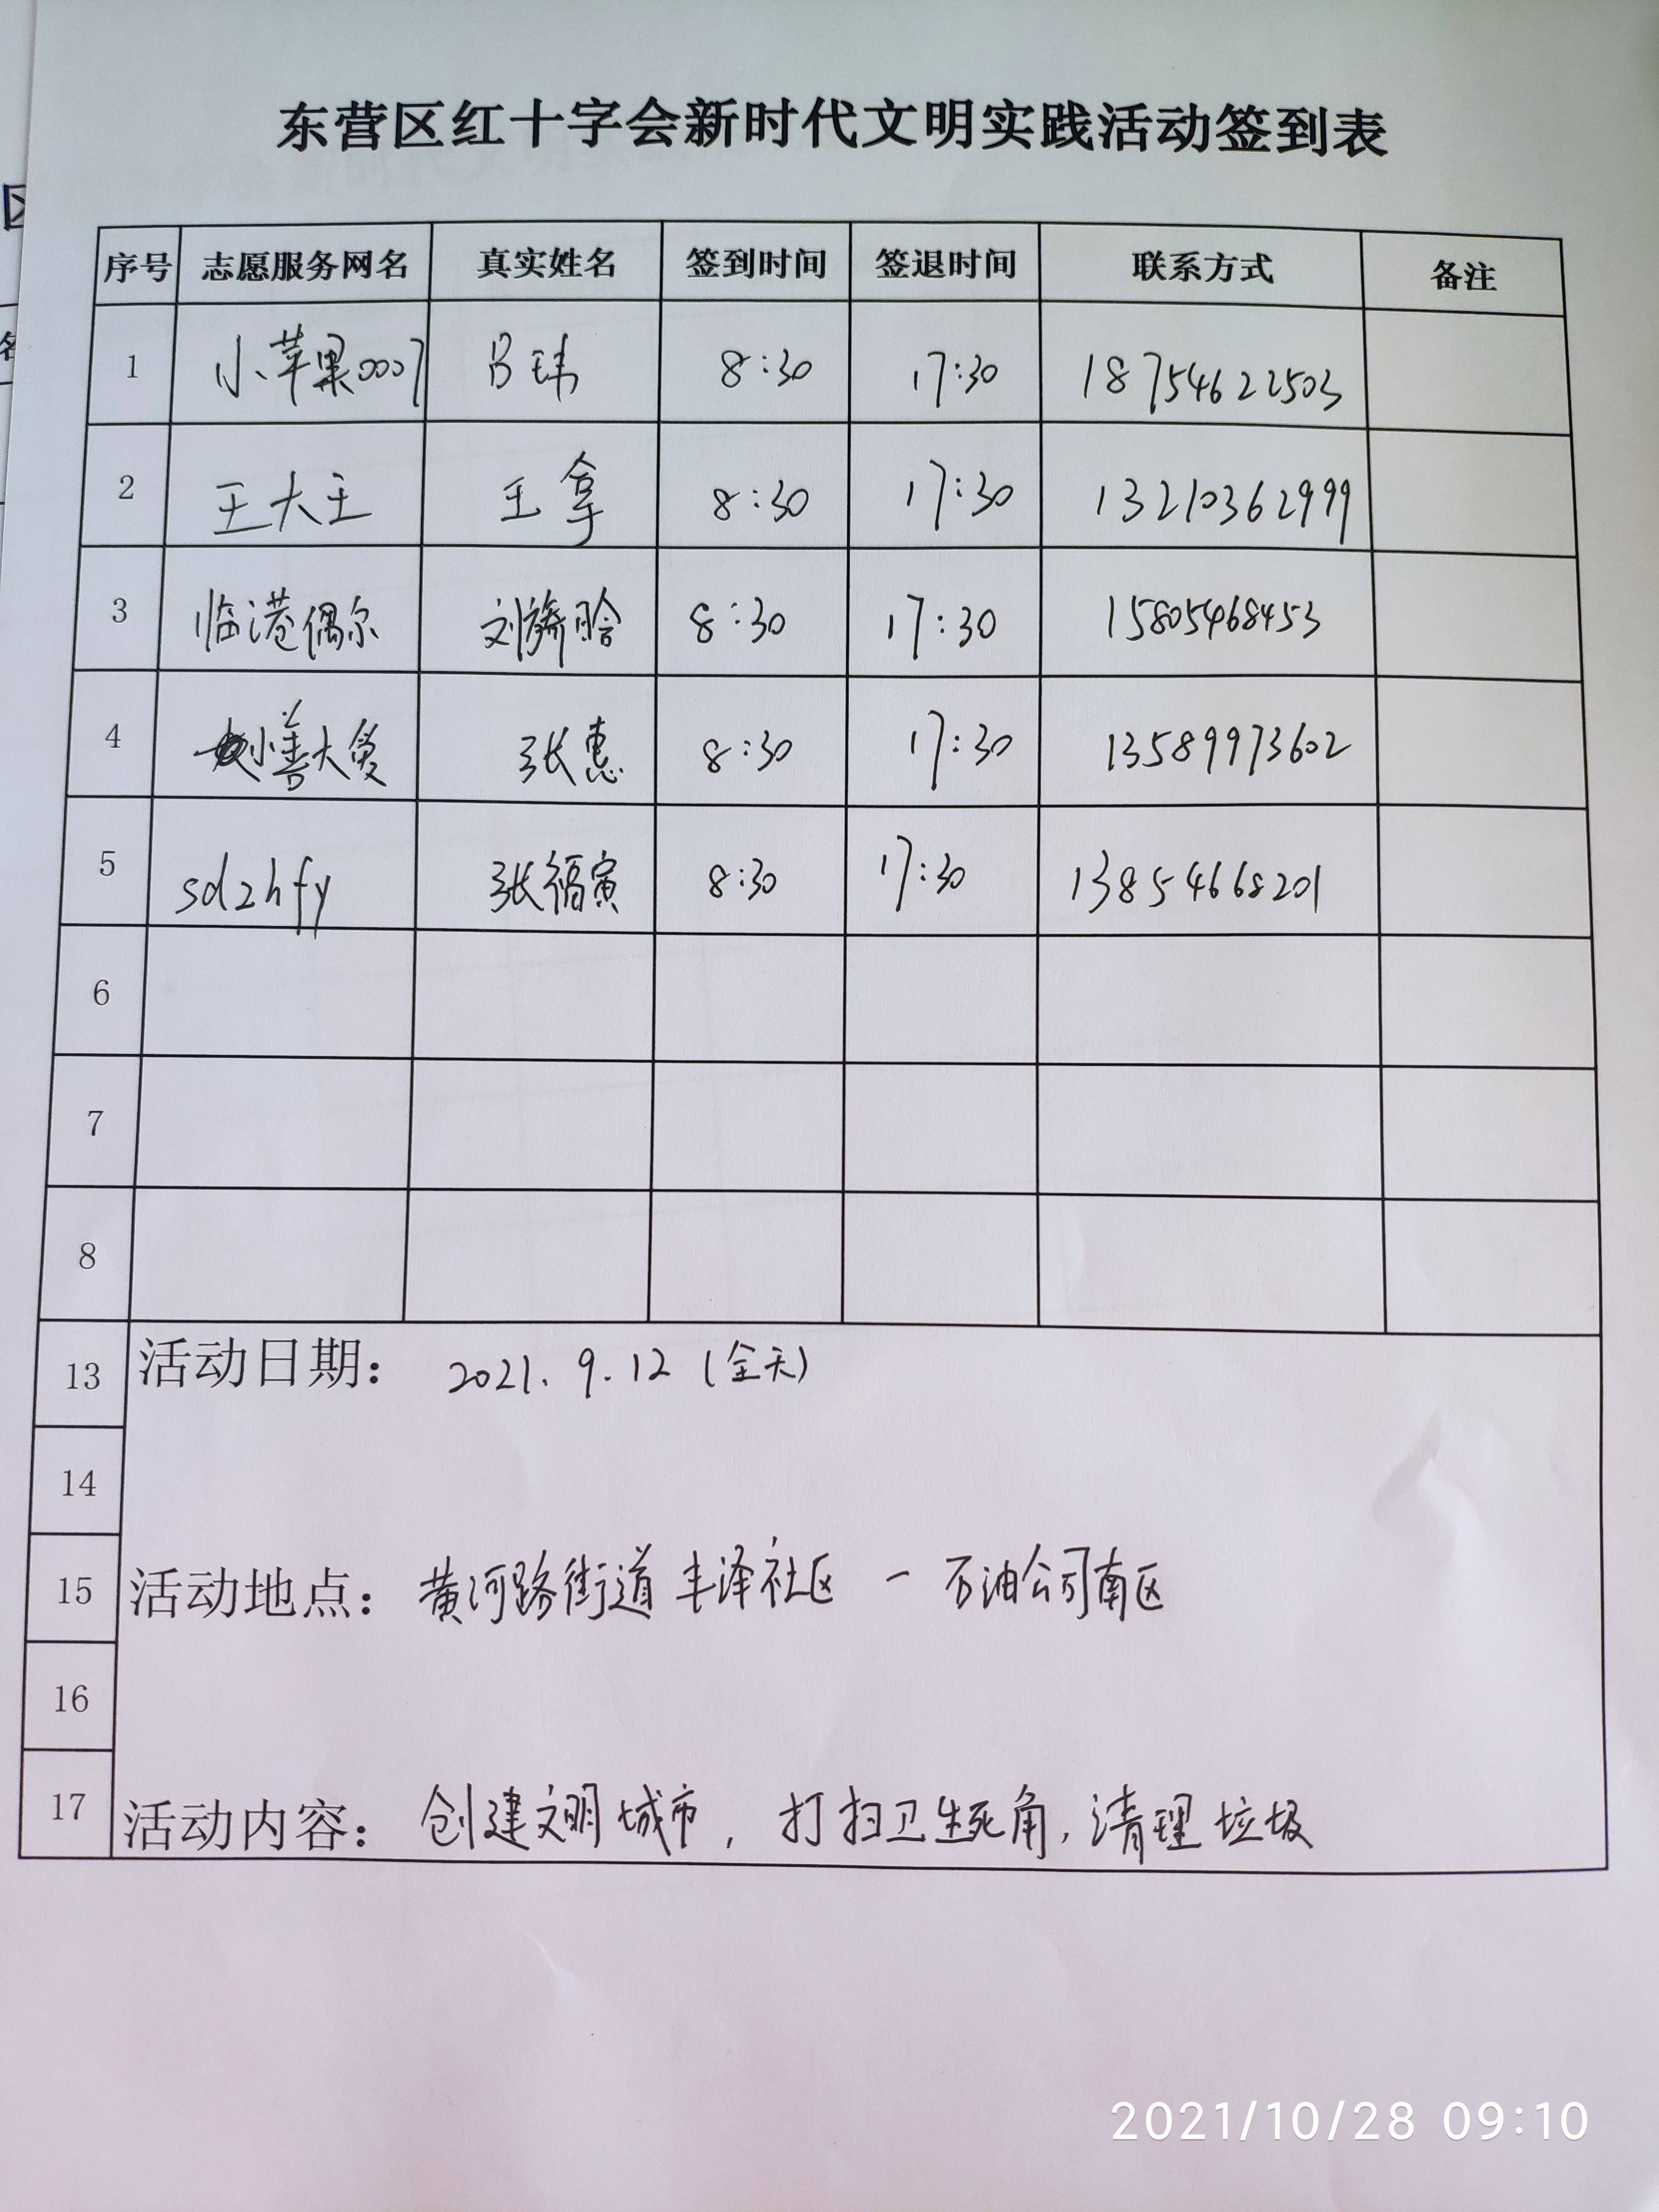 东营区红十字会新时代文明实践活动签到表
序号 志愿服务网名 真实姓名 签到时间 签退时间 联系方式 备注
1 小苹果0007 吕玮 8:30 17:30 18754622503
2 王大王 王拿 8:30 17:30 13210362999
3 临港偶尔 刘 8:30 17:30 15805468453
4 小善大爱 张惠 8:30 17:30 13589973602
5 sdzhfy 张福寅 8:30 17:30 13854668201
6
7
8
13 活动日期： 2021.9.12（全天）
14
15 活动地点： 黄河路街道丰泽社区 — 石油公司南区
16
17 活动内容： 创建文明城市，打扫卫生死角，清理垃圾
2021/10/28 09:10
区
名